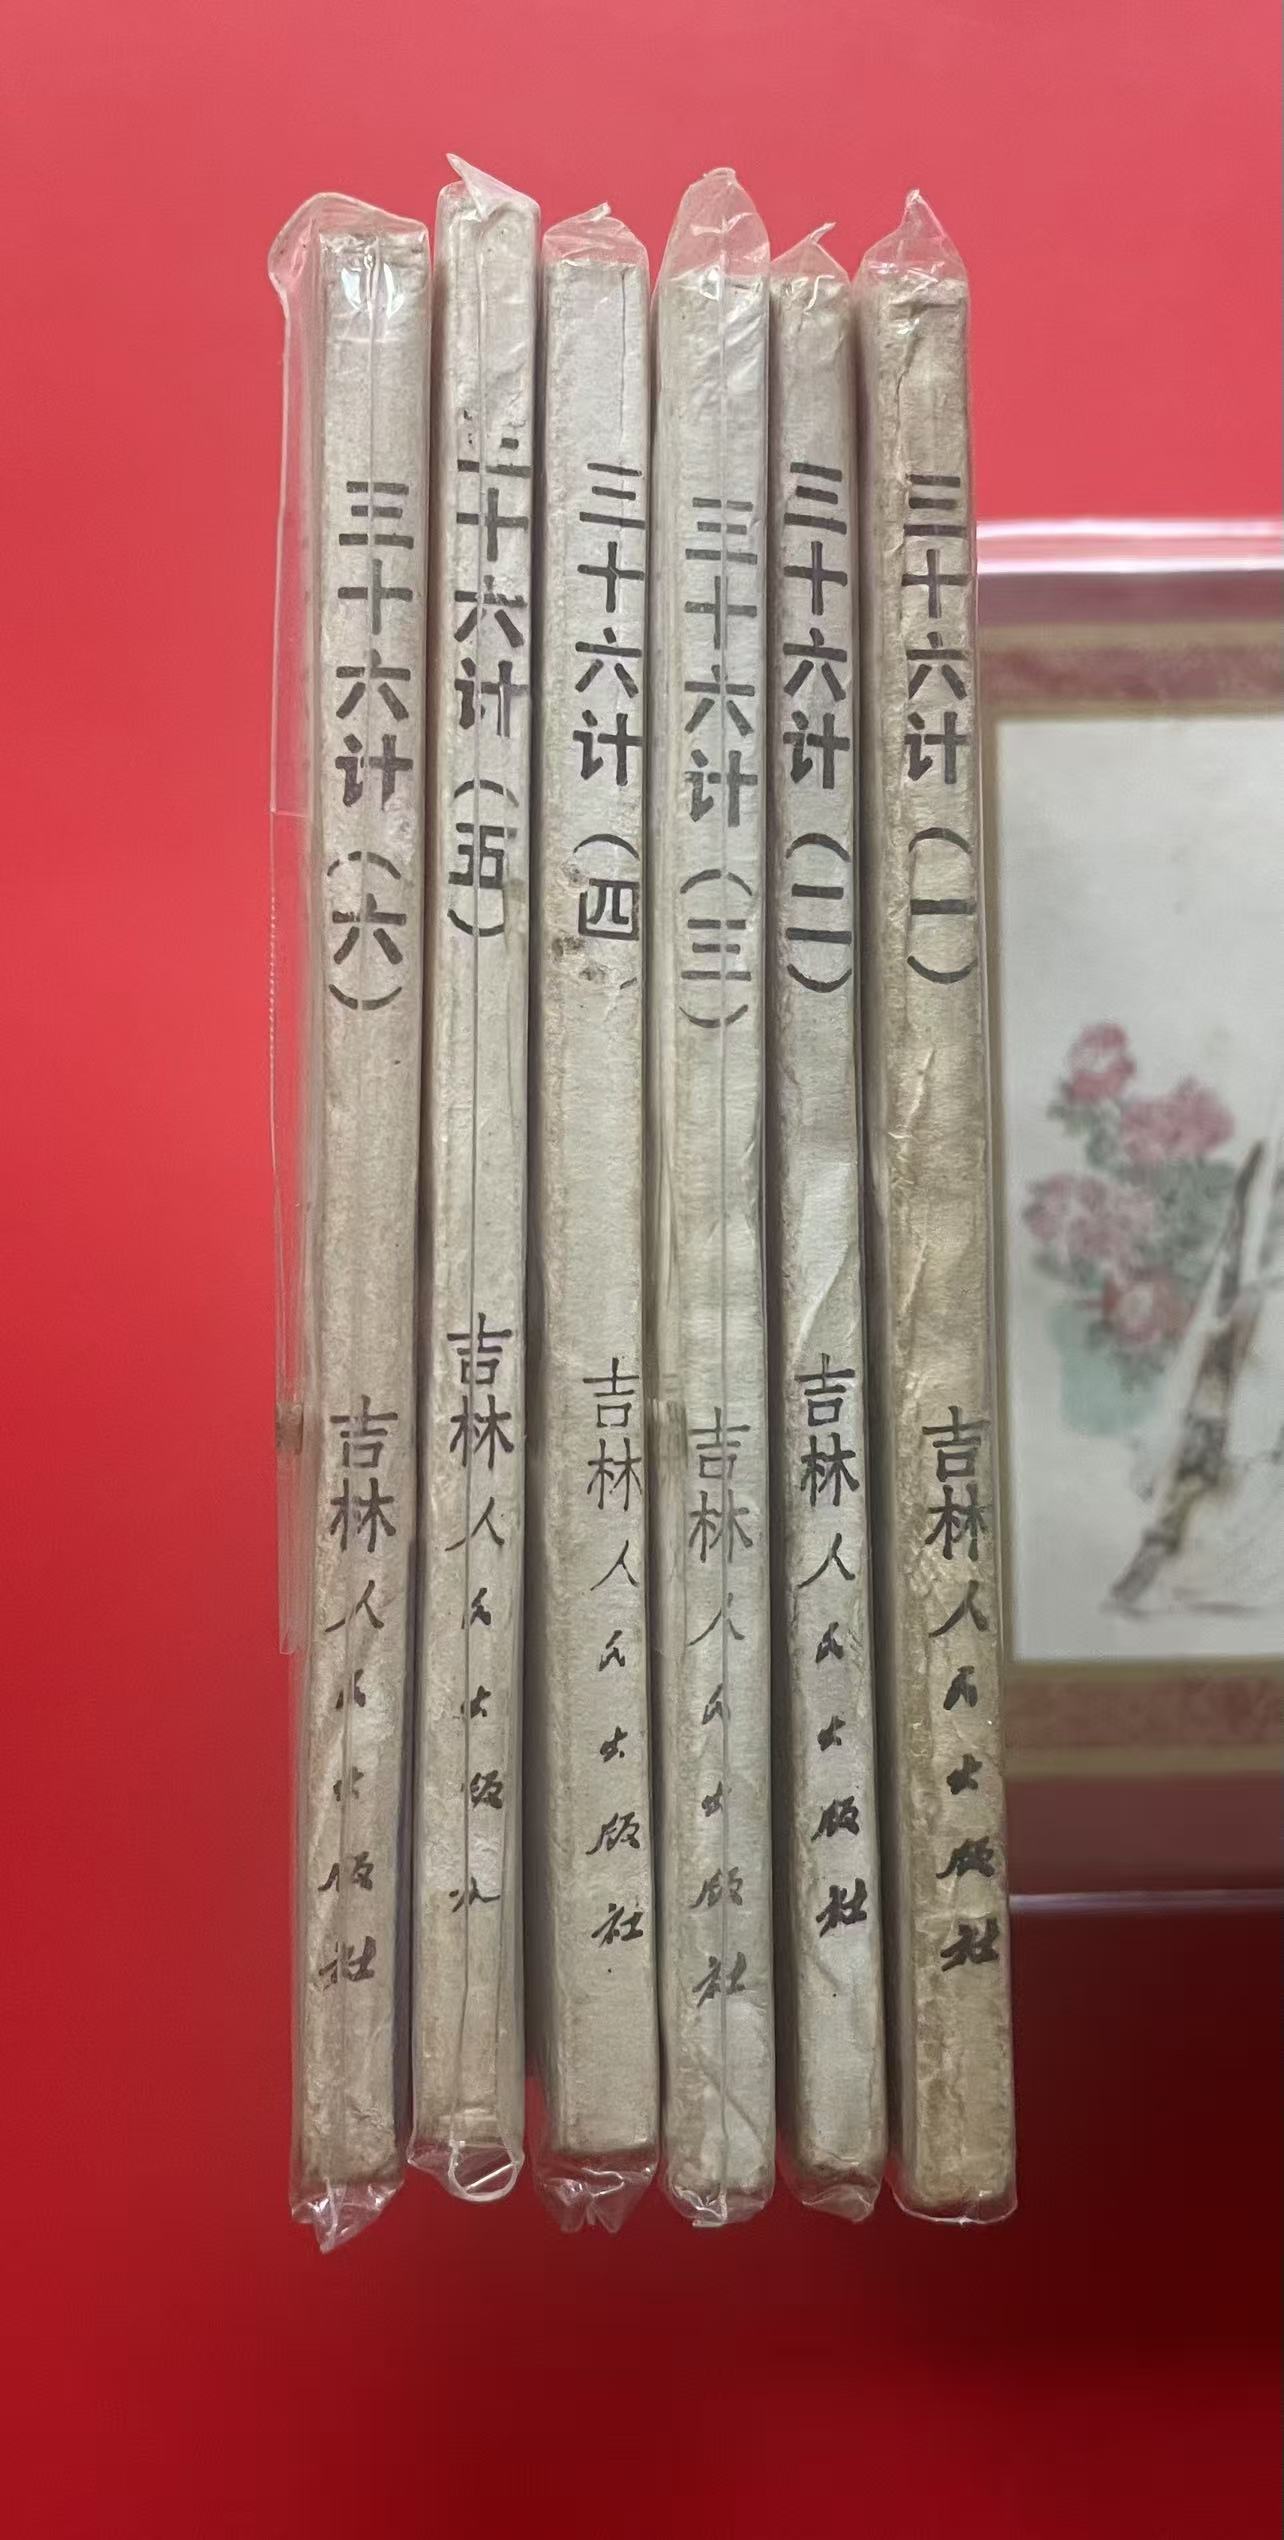 三十六计（六） 吉林人民出版社
三十六计（五） 吉林人民出版社
三十六计（四） 吉林人民出版社
三十六计（三） 吉林人民出版社
三十六计（二） 吉林人民出版社
三十六计（一） 吉林人民出版社